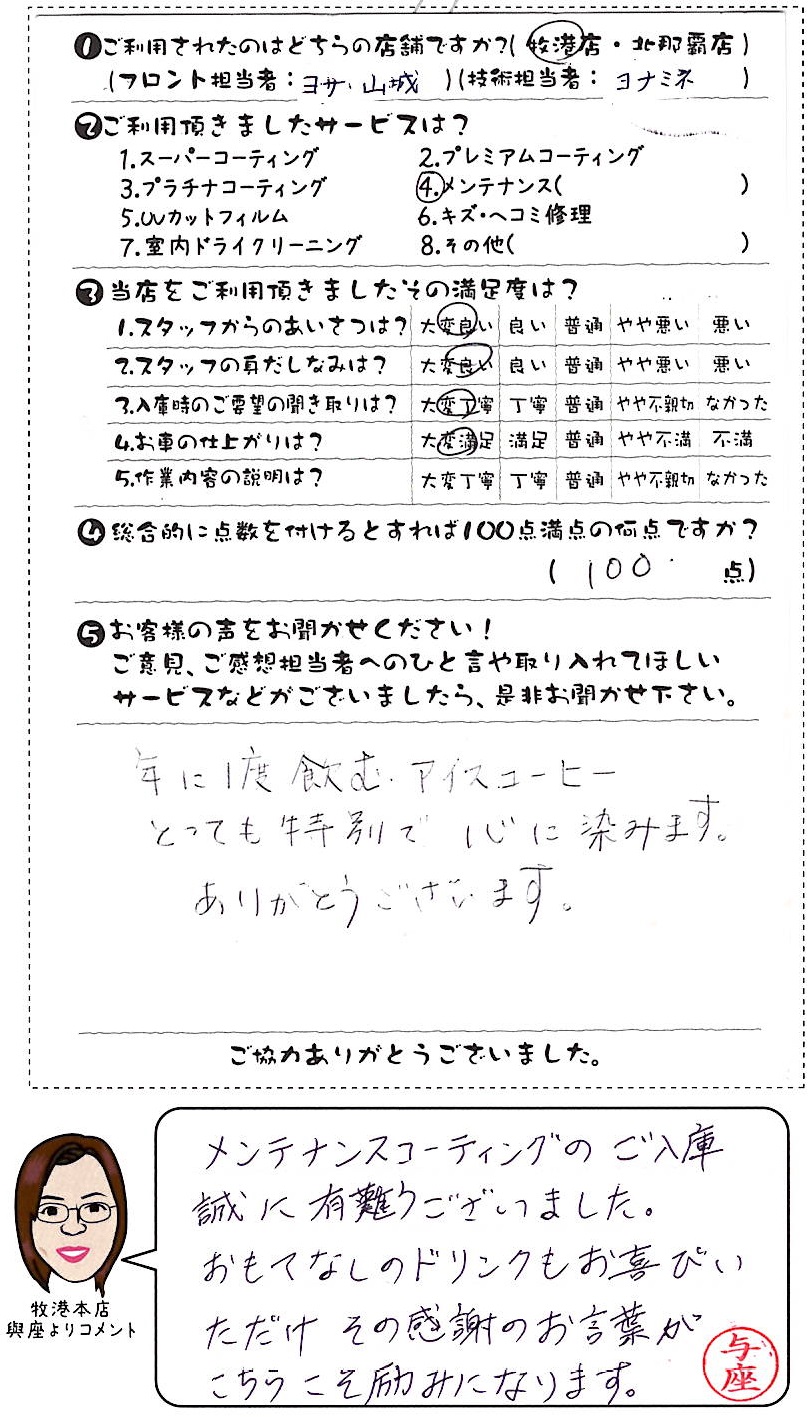 ❶ご利用されたのはどちらの店舗ですか?(牧港店・北那覇店)
(フロント担当者:ヨザ、山城)(技術担当者:ヨナミネ)
❷ご利用頂きましたサービスは?
1.スーパーコーティング 2.プレミアムコーティング
3.プラチナコーティング 4.メンテナンス( )
5.UVカットフィルム 6.キズ・ヘコミ修理
7.室内ドライクリーニング 8.その他( )
❸当店をご利用頂きましたその満足度は?
1.スタッフからのあいさつは? 大変良い 良い 普通 やや悪い 悪い
2.スタッフの身だしなみは? 大変良い 良い 普通 やや悪い 悪い
3.入庫時のご要望の聞き取りは? 大変丁寧 丁寧 普通 やや不親切 なかった
4.お車の仕上がりは? 大変満足 満足 普通 やや不満 不満
5.作業内容の説明は? 大変丁寧 丁寧 普通 やや不親切 なかった
❹総合的に点数を付けるとすれば100点満点の何点ですか?
( 100 点)
❺お客様の声をお聞かせください!
ご意見、ご感想担当者へのひと言や取り入れてほしい
サービスなどがございましたら、是非お聞かせ下さい。
年に1度飲む アイスコーヒー
とっても特別で 心に染みます。
ありがとうございます。
ご協力ありがとうございました。
メンテナンスコーティングの ご入庫
誠に有難うございました。
おもてなしのドリンクもお喜びい
ただけ その感謝のお言葉が
こちらこそ励みになります。
与座
牧港本店
與座よりコメント